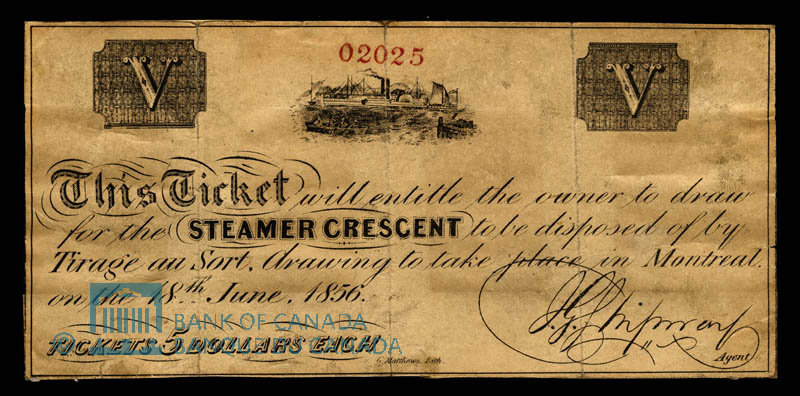 02025
V V
This Ticket will entitle the owner to draw
for the STEAMER CRESCENT to be disposed of by
Tirage au Sort, drawing to take place in Montreal,
on the 18th June, 1856.
BANK OF CANADA
BANQUE DU CANADA
TICKETS 5 DOLLARS EACH
Matthews Lith.
Agent